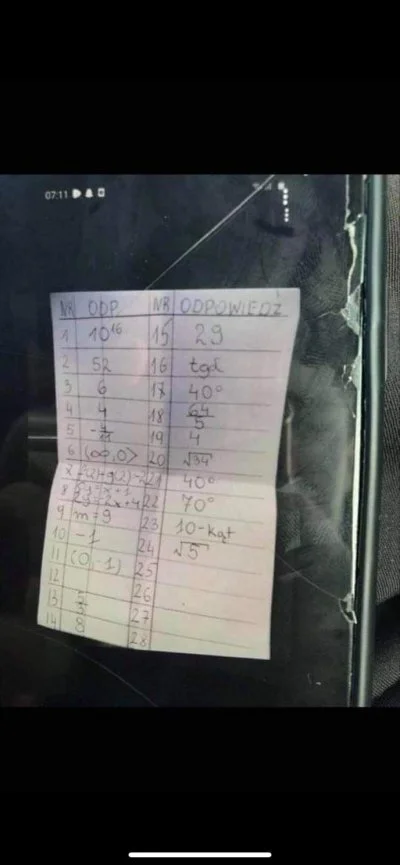 07:11
NR ODP. NR ODPOWIEDŹ
1 10¹⁶ 15 29
2 52 16 tgα
3 6 17 40°
4 4 18 64/5
5 19 4
6 (∞,0> 20 √34
21 40°
8 22 70°
9 m=9 23 10-kąt
10 -1 24 √5
11 (0,-1) 25
12 26
13 5/3 27
14 8 28